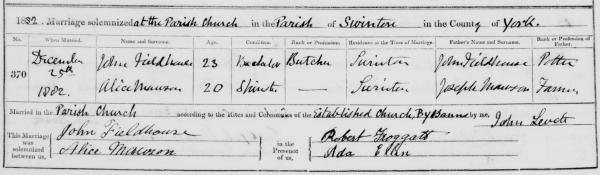 1882. Marriage solemnized at the Parish Church in the Parish of Swinton in the County of York.
No. When Married. Name and Surname. Age. Condition. Rank or Profession. Residence at the Time of Marriage. Father's Name and Surname. Rank or Profession of Father.
370 December 25th 1882. John Fieldhouse 23 Bachelor Butcher Swinton John Fieldhouse Potter
Alice Mawson 20 Spinster — Swinton Joseph Mawson Farmer
Married in the Parish Church according to the Rites and Ceremonies of the Established Church, By Banns by me,
John Levett
This Marriage was solemnized between us, John Fieldhouse Alice Mawson in the Presence of us, Robert Froggatt Ada Ellin